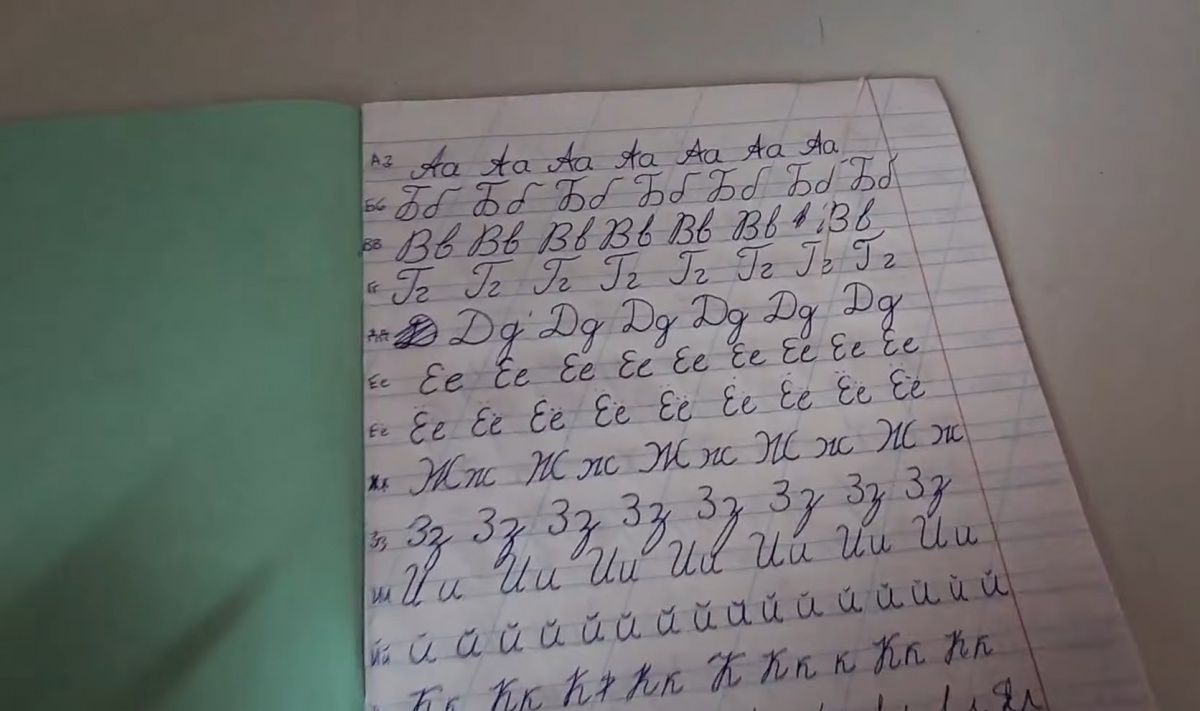 Аа Аа Аа Аа Аа Аа Аа Аа
Бб Бб Бб Бб Бб Бб Бб Бб
Вв Вв Вв Вв Вв Вв Вв Вв
Гг Гг Гг Гг Гг Гг Гг Гг Гг
Дд Дд Дд Дд Дд Дд
Ее Ее Ее Ее Ее Ее Ее Ее Ее Ее
Её Ёе Ёё Ёё Ёё Ёё Ёё Ёё Ёё Ёё
Жж Жж Жж Жж Жж
Зз Зз Зз Зз Зз Зз Зз Зз Зз
Ии Ии Ии Ии Ии Ии Ии
Йй й й й й й й й й й й й й й й й
Кк Кк К Кк К Кк к Кк Кк